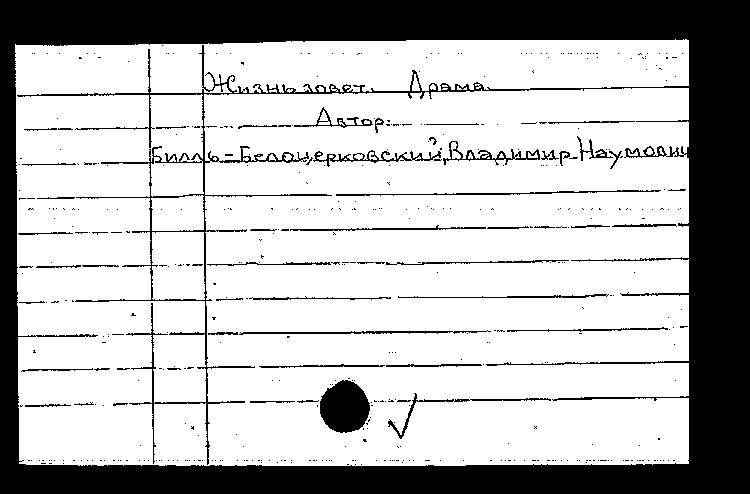 Жизнь зовет. Драма.
Автор:
Билль-Белоцерковский, Владимир Наумович